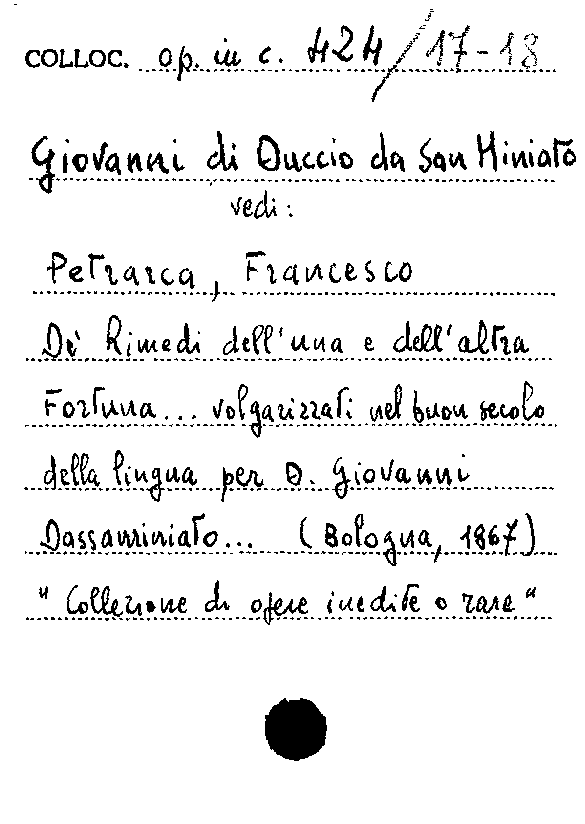 COLLOC. op. in c. 424/17-18
Giovanni di Duccio da San Miniato
vedi:
Petrarca, Francesco
De' Rimedi dell'una e dell'altra
Fortuna... volgarizzati nel buon secolo
della lingua per D. Giovanni
Dassaminiato... (Bologna, 1867)
"Collezione di opere inedite o rare"